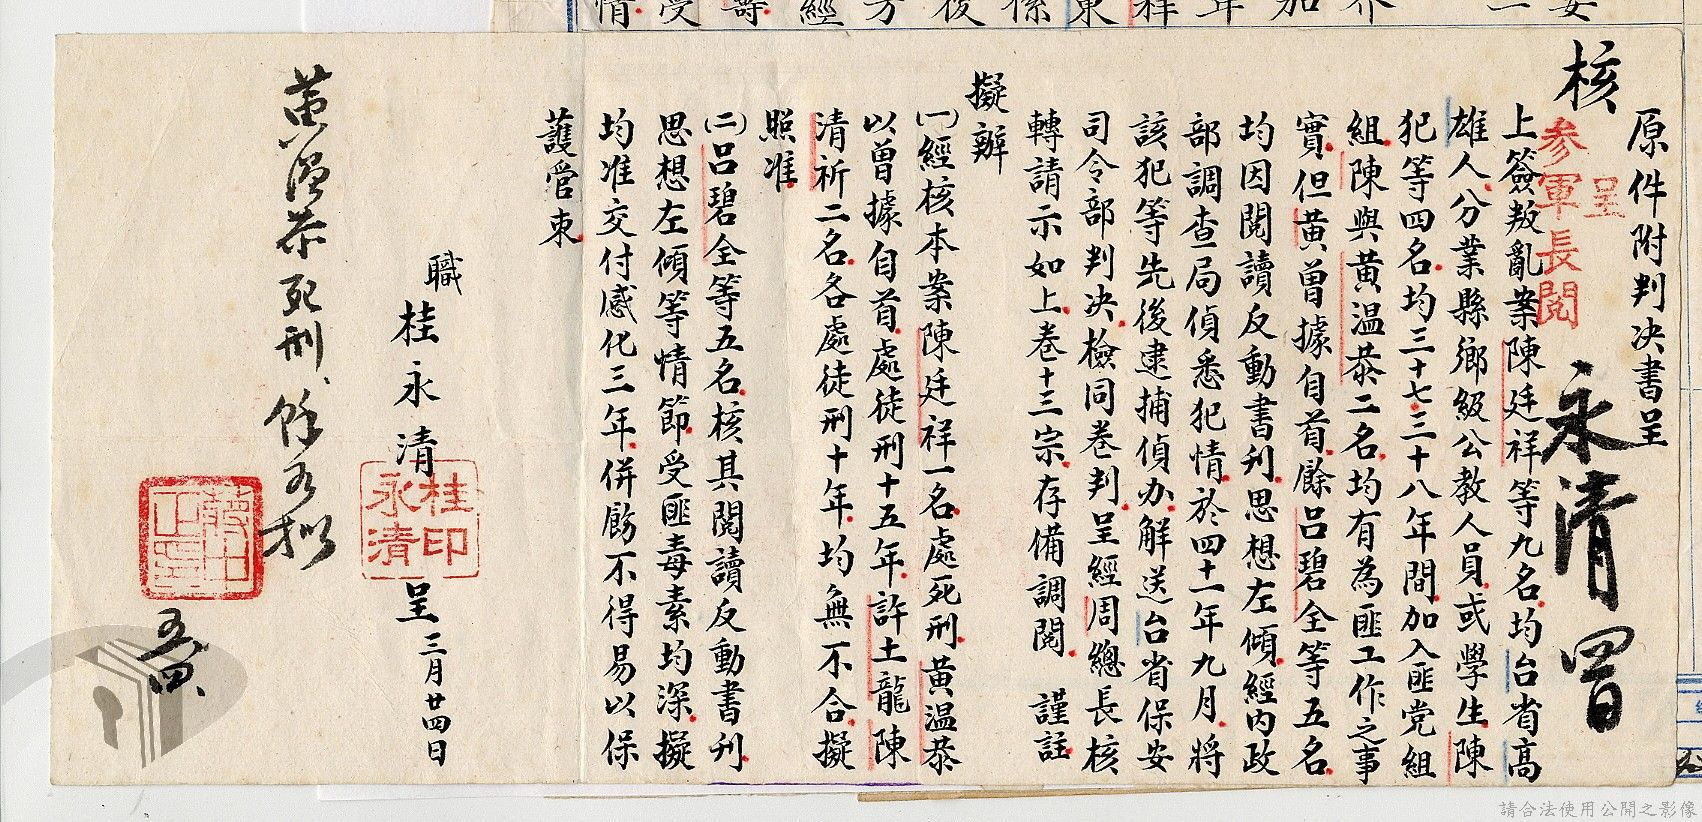 核
原件附判決書呈
呈
參軍長閱
永清 四日
上簽叛亂案陳廷祥等九名均台省高
雄人分業縣鄉級公教人員或學生陳
犯等四名均三十七、三十八年間加入匪党組
組陳與黃温恭二名均有為匪工作之事
實但黃曾據自首餘呂碧全等五名
均因閱讀反動書刊思想左傾經內政
部調查局偵悉犯情於四十一年九月將
該犯等先後逮捕偵办解送台省保安
司令部判决檢同卷判呈經周總長核
轉請示如上卷十三宗存備調閱 謹註
擬辦
㈠經核本案陳廷祥一名處死刑黃温恭
以曾據自首處徒刑十五年許土龍陳
清祈二名各處徒刑十年均無不合擬
照准
㈡呂碧全等五名核其閱讀反動書刊
思想左傾等情節受匪毒素均深擬
均准交付感化三年併飭不得易以保
護管束
職 桂永清 呈 三月廿四日
桂永清印
黃溫恭死刑、餘如擬
五四、
請合法使用公開之影像